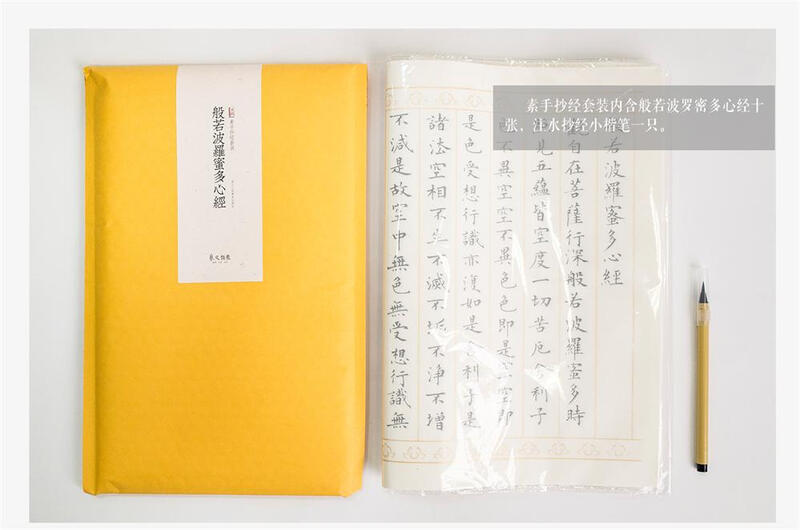 素手抄经套装内含般若波罗密多心经十
张、注水抄经小楷笔一只。
素手抄經套裝
般若波羅蜜多心經
若波羅蜜多心經
自在菩薩行深般若波羅蜜多時
見五蘊皆空度一切苦厄舍利子
不異空空不異色色即是空空即
是色受想行識亦復如是舍利子是
諸法空相不生不滅不垢不淨不增
不減是故空中無色無受想行識無